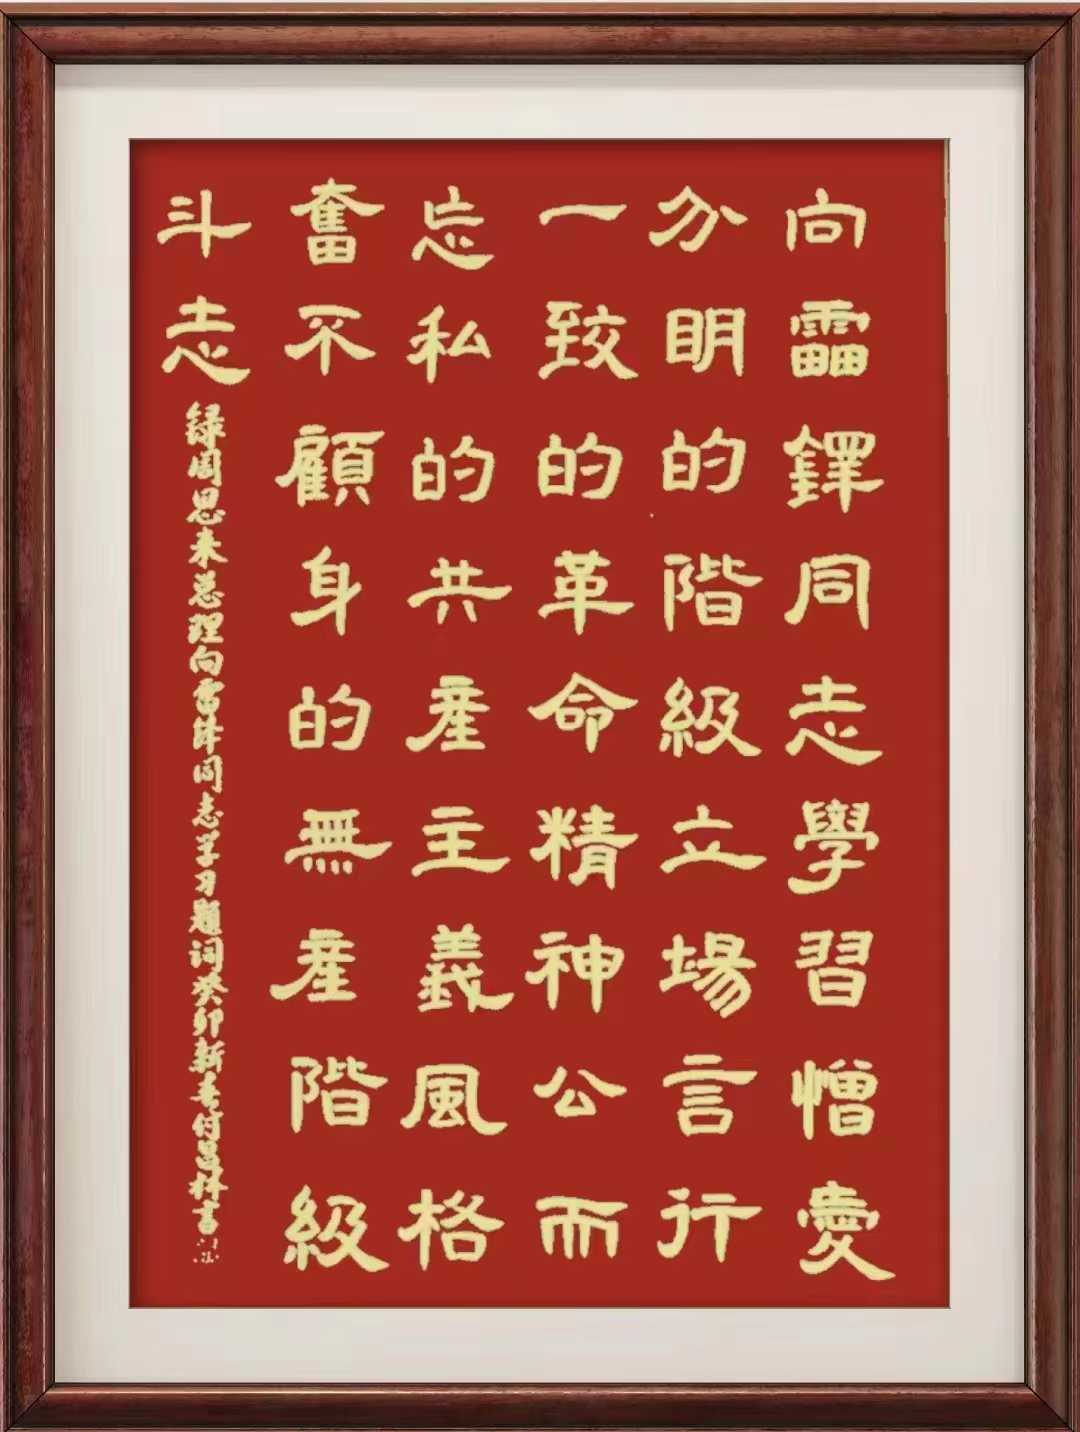 向靁鋒同志學習憎愛
分明的階級立場言行
一致的革命精神公而
忘私的共産主義風格
奮不顧身的無産階級
斗志
録周恩来总理向雷锋同志学习题词癸卯新春付昌林書